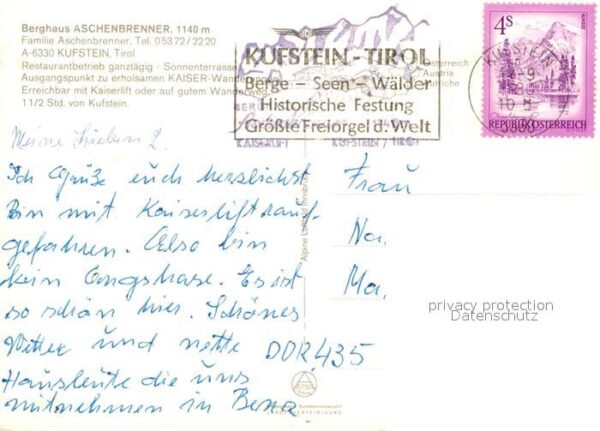 Berghaus ASCHENBRENNER, 1140 m
Familie Aschenbrenner, Tel. 05372/2220
A-6330 KUFSTEIN, Tirol
Restaurantbetrieb ganztägig - Sonnenterrasse
Ausgangspunkt zu erholsamen KAISER-Wande
Erreichbar mit Kaiserlift oder auf gutem Wanderweg,
1 1/2 Std. von Kufstein.
KUFSTEIN-TIROL
Berge - Seen - Wälder
Historische Festung
Größte Freiorgel d. Welt
KAISERLIFT KUFSTEIN / TIROL
KUFSTEIN
4S
REPUBLIK ÖSTERREICH
Meine Lieben 2.
Ich Grüße euch herzlichst
Bin mit Kaiserlift rauf-
gefahren. Also bin
kein Angsthase. Es ist
so schön hier. Schönes
Wetter und nette
Hausleute die uns
mitnehmen in Berge
DDR, 435
Frau
Na.
Ma.
Alpine Luftbild Innsbruck
privacy protection
Datenschutz